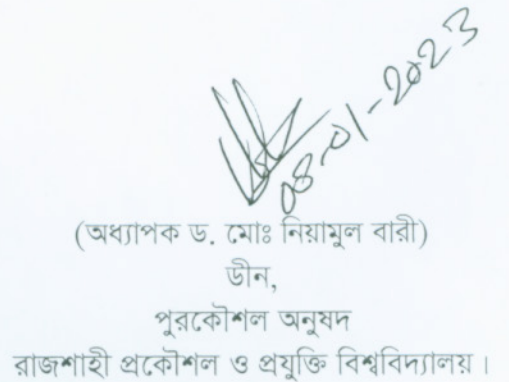 08-01-2023
(অধ্যাপক ড. মোঃ নিয়ামুল বারী)
ডীন,
পুরকৌশল অনুষদ
রাজশাহী প্রকৌশল ও প্রযুক্তি বিশ্ববিদ্যালয়।